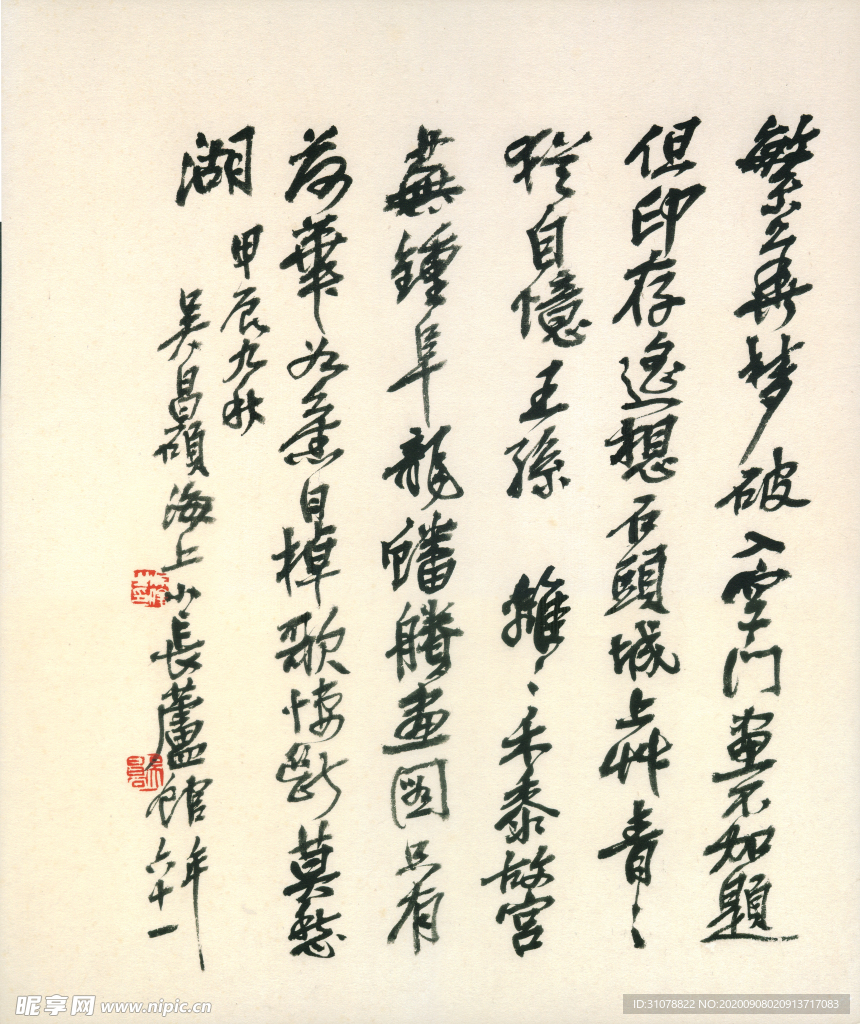 繁華夢破入空門畫不加題
但印存遙想石頭城上艸青〻
猶自憶王孫 離〻禾黍故宮
蕪鍾阜龍蟠賸畫圖只有
荷華如舊日棹歌悽斷莫愁
湖
甲辰九秋
吳昌碩海上小長蘆館
年六十一
昵享网 www.nipic.cn
ID:31078822 NO:20200908020913717083